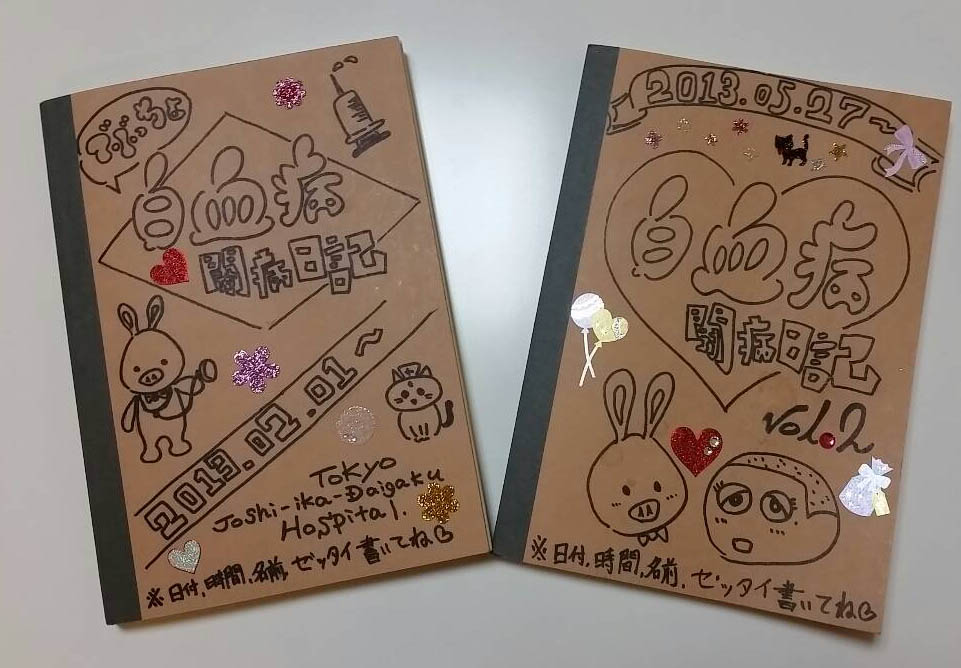 白血病
闘病日記
2013.02.01～
TOKYO
Joshi-ika-Daigaku
Hospital.
※日付,時間,名前,ゼッタイ書いてね♡
2013.05.27～
白血病
闘病日記
vol.2
※日付,時間,名前.ゼッタイ書いてね♡